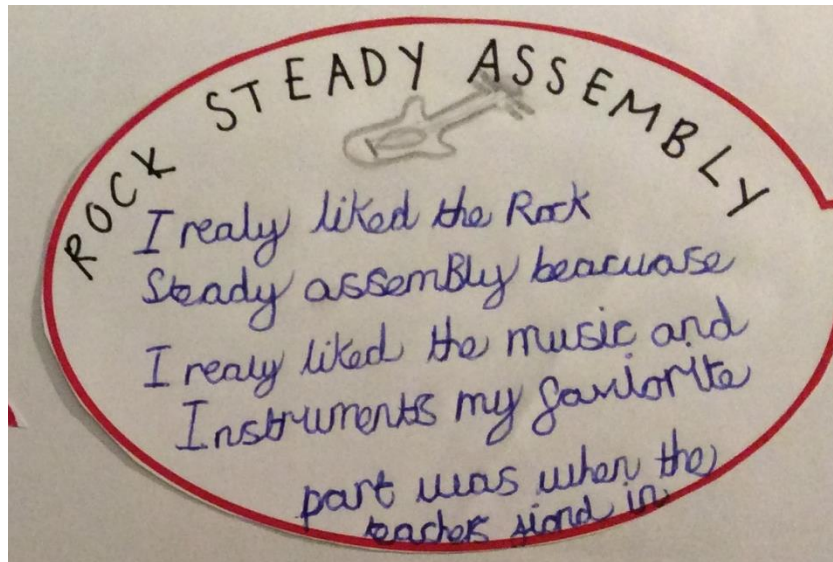 ROCK STEADY ASSEMBLY
I realy liked the Rock
Steady assemBly beacuase
I realy liked the music and
Instruments my faviorite
part was when the
teachers jiond in